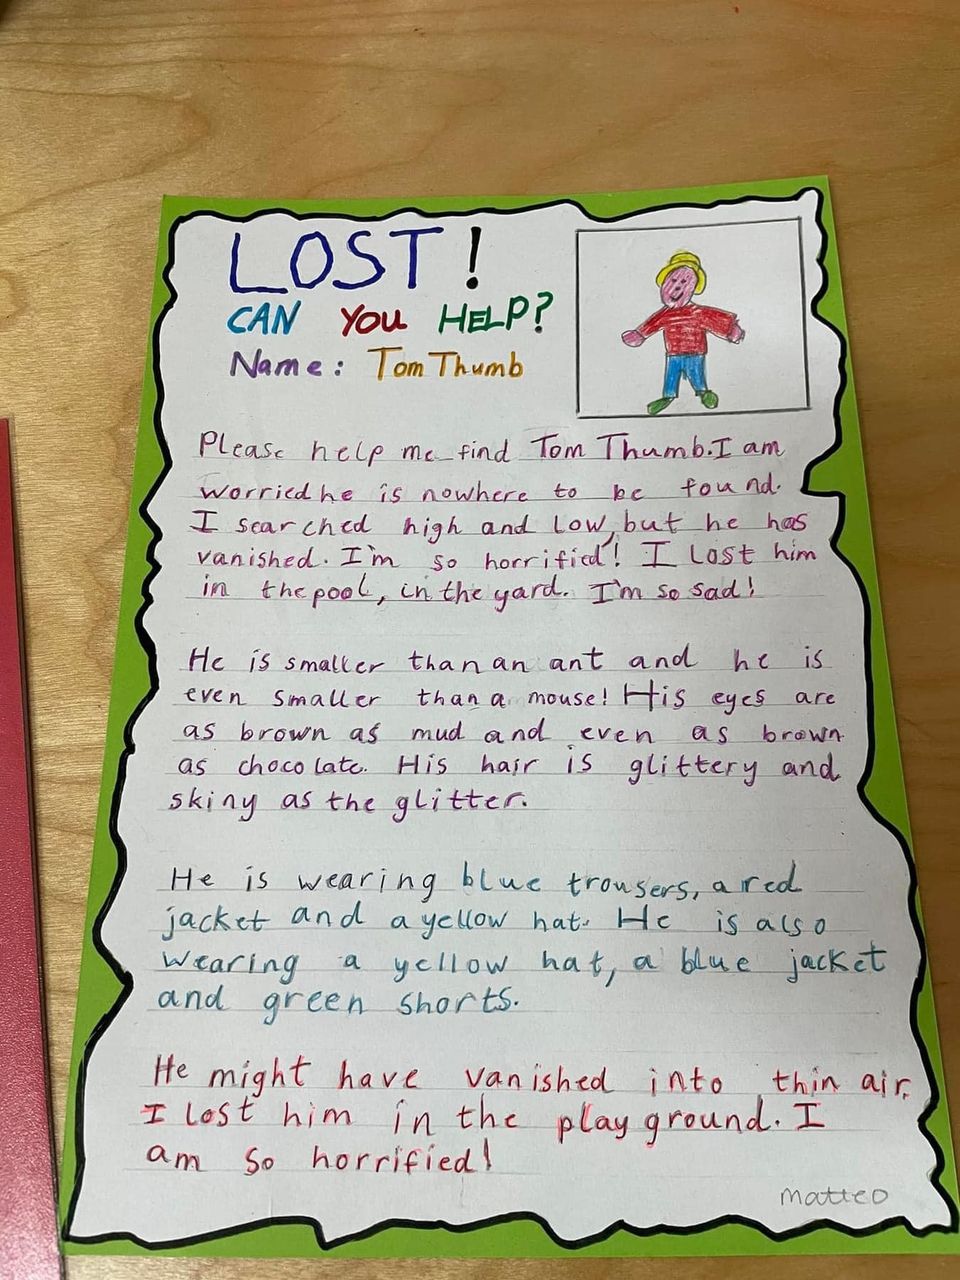 LOST!
CAN YOU HELP?
Name: Tom Thumb
Please help me find Tom Thumb. I am
worried he is nowhere to be found.
I searched high and low, but he has
vanished. I'm so horrified! I Lost him
in the pool, in the yard. I'm so sad!
He is smaller than an ant and he is
even smaller than a mouse! His eyes are
as brown as mud and even as brown
as chocolate. His hair is glittery and
skiny as the glitter.
He is wearing blue trousers, a red
jacket and a yellow hat. He is also
wearing a yellow hat, a blue jacket
and green shorts.
He might have vanished into thin air.
I lost him in the playground. I
am so horrified!
matteo